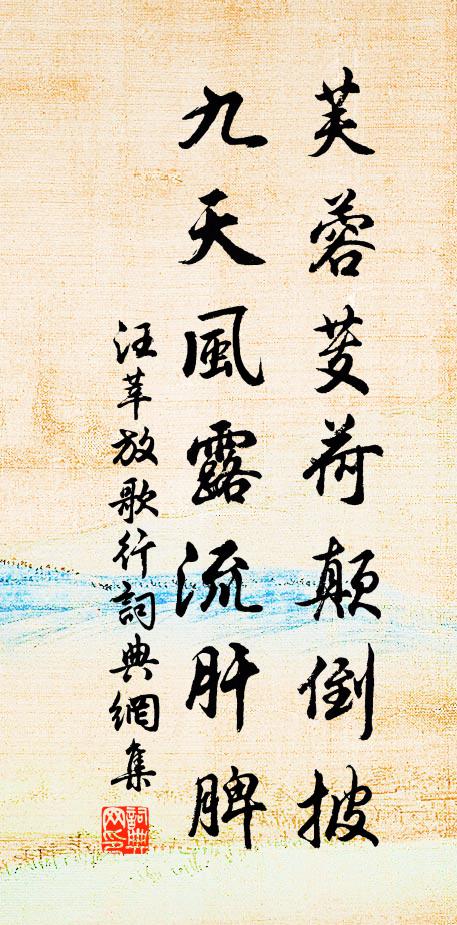 芙蓉芰荷颠倒披
九天風露流肝脾
汪莘放歌行詞典網集
詞典網印